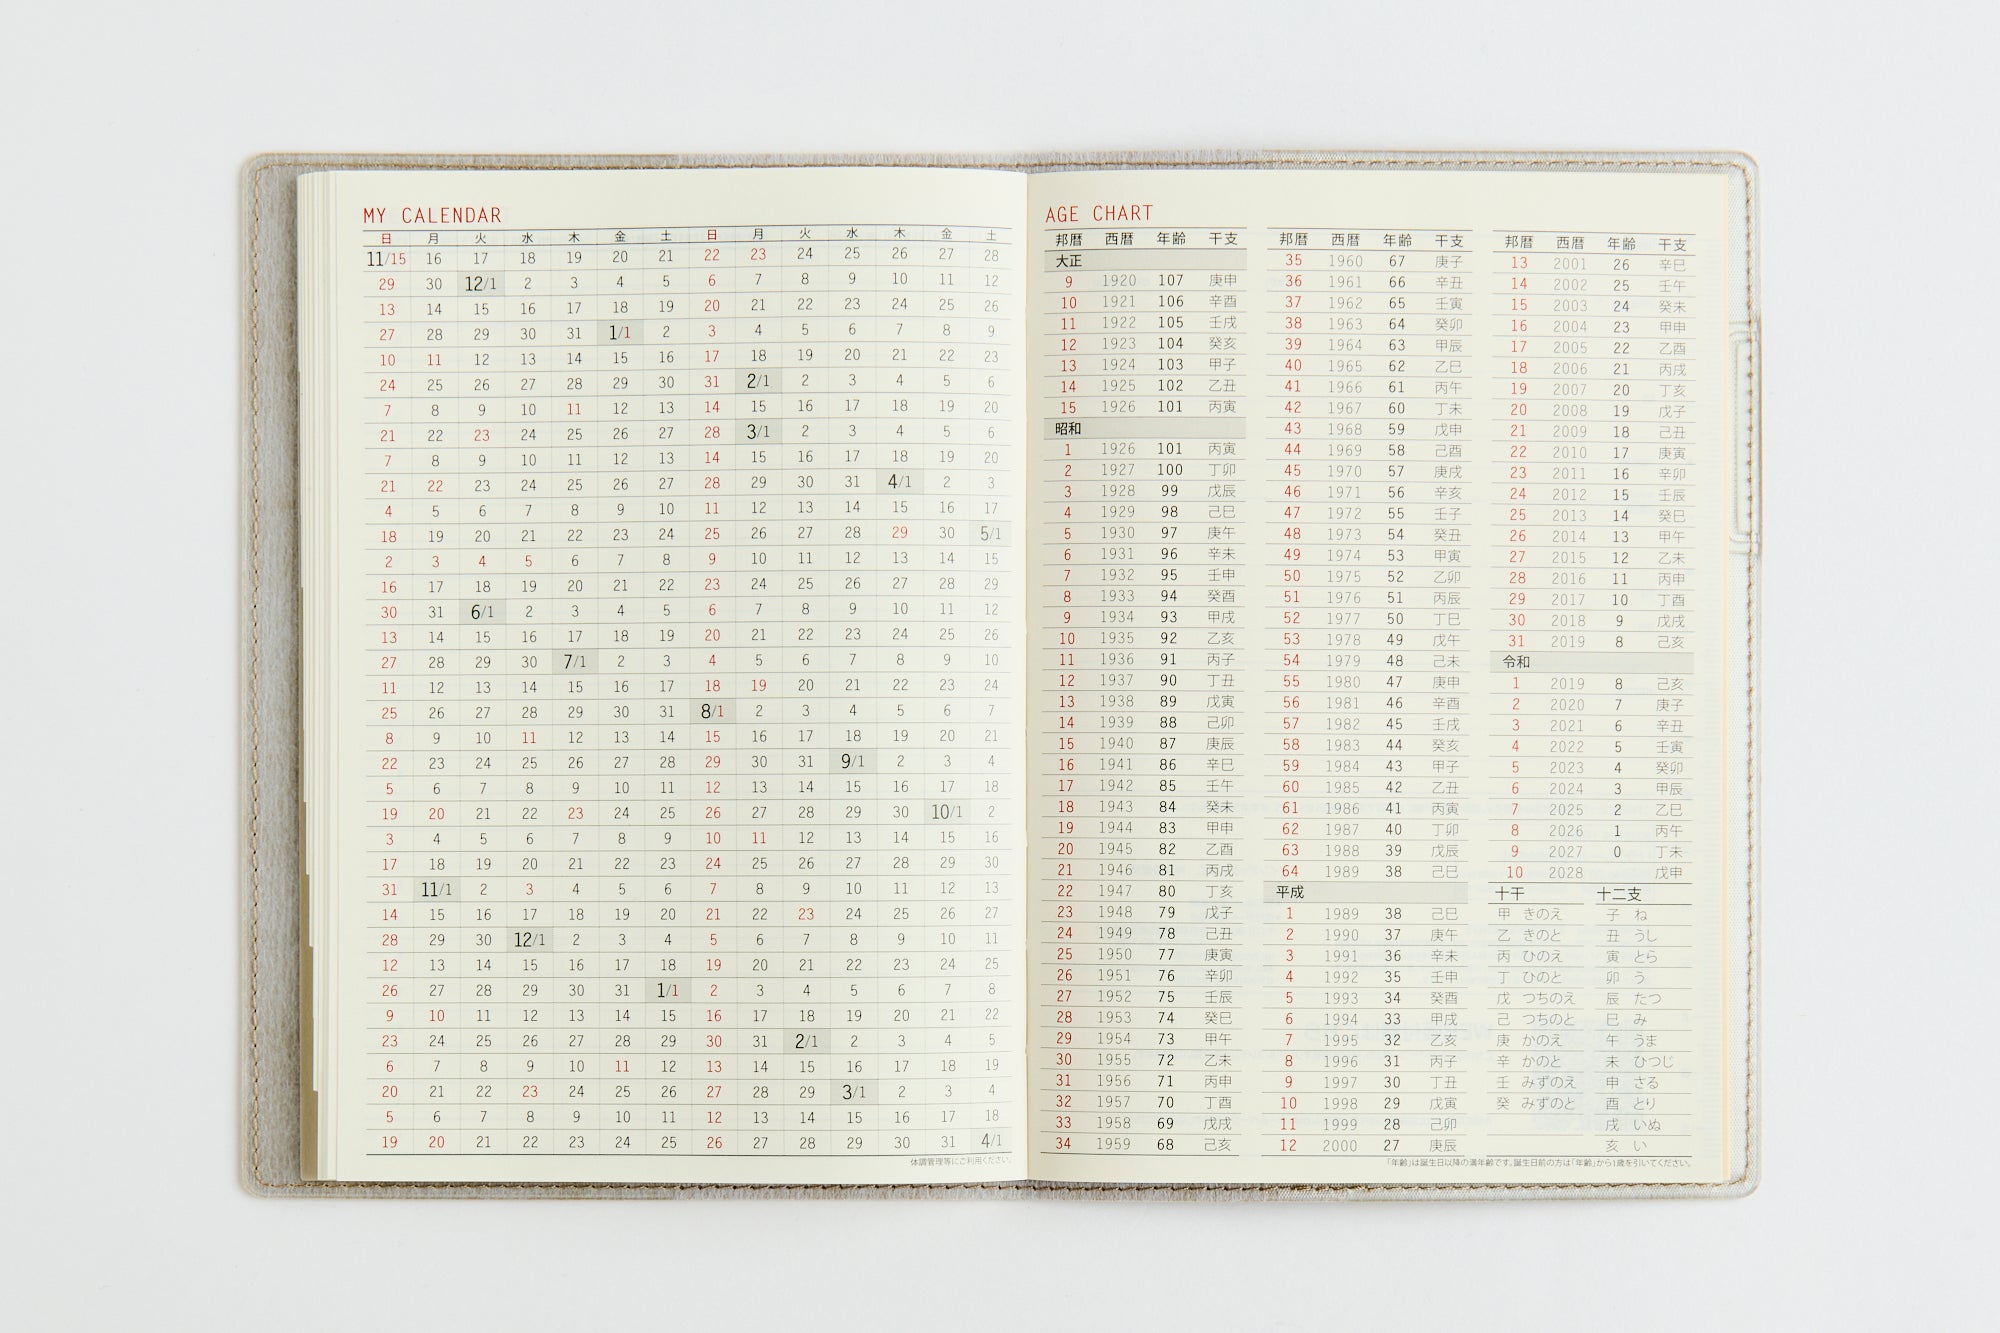 MY CALENDAR
日 月 火 水 木 金 土 日 月 火 水 木 金 土
11/15 16 17 18 19 20 21 22 23 24 25 26 27 28
29 30 12/1 2 3 4 5 6 7 8 9 10 11 12
13 14 15 16 17 18 19 20 21 22 23 24 25 26
27 28 29 30 31 1/1 2 3 4 5 6 7 8 9
10 11 12 13 14 15 16 17 18 19 20 21 22 23
24 25 26 27 28 29 30 31 2/1 2 3 4 5 6
7 8 9 10 11 12 13 14 15 16 17 18 19 20
21 22 23 24 25 26 27 28 3/1 2 3 4 5 6
7 8 9 10 11 12 13 14 15 16 17 18 19 20
21 22 23 24 25 26 27 28 29 30 31 4/1 2 3
4 5 6 7 8 9 10 11 12 13 14 15 16 17
18 19 20 21 22 23 24 25 26 27 28 29 30 5/1
2 3 4 5 6 7 8 9 10 11 12 13 14 15
16 17 18 19 20 21 22 23 24 25 26 27 28 29
30 31 6/1 2 3 4 5 6 7 8 9 10 11 12
13 14 15 16 17 18 19 20 21 22 23 24 25 26
27 28 29 30 7/1 2 3 4 5 6 7 8 9 10
11 12 13 14 15 16 17 18 19 20 21 22 23 24
25 26 27 28 29 30 31 8/1 2 3 4 5 6 7
8 9 10 11 12 13 14 15 16 17 18 19 20 21
22 23 24 25 26 27 28 29 30 31 9/1 2 3 4
5 6 7 8 9 10 11 12 13 14 15 16 17 18
19 20 21 22 23 24 25 26 27 28 29 30 10/1 2
3 4 5 6 7 8 9 10 11 12 13 14 15 16
17 18 19 20 21 22 23 24 25 26 27 28 29 30
31 11/1 2 3 4 5 6 7 8 9 10 11 12 13
14 15 16 17 18 19 20 21 22 23 24 25 26 27
28 29 30 12/1 2 3 4 5 6 7 8 9 10 11
12 13 14 15 16 17 18 19 20 21 22 23 24 25
26 27 28 29 30 31 1/1 2 3 4 5 6 7 8
9 10 11 12 13 14 15 16 17 18 19 20 21 22
23 24 25 26 27 28 29 30 31 2/1 2 3 4 5
6 7 8 9 10 11 12 13 14 15 16 17 18 19
20 21 22 23 24 25 26 27 28 29 3/1 2 3 4
5 6 7 8 9 10 11 12 13 14 15 16 17 18
19 20 21 22 23 24 25 26 27 28 29 30 31 4/1
体調管理等にご利用ください。
AGE CHART
邦暦 西暦 年齢 干支
大正
9 1920 107 庚申
10 1921 106 辛酉
11 1922 105 壬戌
12 1923 104 癸亥
13 1924 103 甲子
14 1925 102 乙丑
15 1926 101 丙寅
昭和
1 1926 101 丙寅
2 1927 100 丁卯
3 1928 99 戊辰
4 1929 98 己巳
5 1930 97 庚午
6 1931 96 辛未
7 1932 95 壬申
8 1933 94 癸酉
9 1934 93 甲戌
10 1935 92 乙亥
11 1936 91 丙子
12 1937 90 丁丑
13 1938 89 戊寅
14 1939 88 己卯
15 1940 87 庚辰
16 1941 86 辛巳
17 1942 85 壬午
18 1943 84 癸未
19 1944 83 甲申
20 1945 82 乙酉
21 1946 81 丙戌
22 1947 80 丁亥
23 1948 79 戊子
24 1949 78 己丑
25 1950 77 庚寅
26 1951 76 辛卯
27 1952 75 壬辰
28 1953 74 癸巳
29 1954 73 甲午
30 1955 72 乙未
31 1956 71 丙申
32 1957 70 丁酉
33 1958 69 戊戌
34 1959 68 己亥
邦暦 西暦 年齢 干支
35 1960 67 庚子
36 1961 66 辛丑
37 1962 65 壬寅
38 1963 64 癸卯
39 1964 63 甲辰
40 1965 62 乙巳
41 1966 61 丙午
42 1967 60 丁未
43 1968 59 戊申
44 1969 58 己酉
45 1970 57 庚戌
46 1971 56 辛亥
47 1972 55 壬子
48 1973 54 癸丑
49 1974 53 甲寅
50 1975 52 乙卯
51 1976 51 丙辰
52 1977 50 丁巳
53 1978 49 戊午
54 1979 48 己未
55 1980 47 庚申
56 1981 46 辛酉
57 1982 45 壬戌
58 1983 44 癸亥
59 1984 43 甲子
60 1985 42 乙丑
61 1986 41 丙寅
62 1987 40 丁卯
63 1988 39 戊辰
64 1989 38 己巳
平成
1 1989 38 己巳
2 1990 37 庚午
3 1991 36 辛未
4 1992 35 壬申
5 1993 34 癸酉
6 1994 33 甲戌
7 1995 32 乙亥
8 1996 31 丙子
9 1997 30 丁丑
10 1998 29 戊寅
11 1999 28 己卯
12 2000 27 庚辰
邦暦 西暦 年齢 干支
13 2001 26 辛巳
14 2002 25 壬午
15 2003 24 癸未
16 2004 23 甲申
17 2005 22 乙酉
18 2006 21 丙戌
19 2007 20 丁亥
20 2008 19 戊子
21 2009 18 己丑
22 2010 17 庚寅
23 2011 16 辛卯
24 2012 15 壬辰
25 2013 14 癸巳
26 2014 13 甲午
27 2015 12 乙未
28 2016 11 丙申
29 2017 10 丁酉
30 2018 9 戊戌
31 2019 8 己亥
令和
1 2019 8 己亥
2 2020 7 庚子
3 2021 6 辛丑
4 2022 5 壬寅
5 2023 4 癸卯
6 2024 3 甲辰
7 2025 2 乙巳
8 2026 1 丙午
9 2027 0 丁未
10 2028 戊申
十干 十二支
甲 きのえ 子 ね
乙 きのと 丑 うし
丙 ひのえ 寅 とら
丁 ひのと 卯 う
戊 つちのえ 辰 たつ
己 つちのと 巳 み
庚 かのえ 午 うま
辛 かのと 未 ひつじ
壬 みずのえ 申 さる
癸 みずのと 酉 とり
戌 いぬ
亥 い
「年齢」は誕生日以降の満年齢です。誕生日前の方は「年齢」から1歳を引いてください。